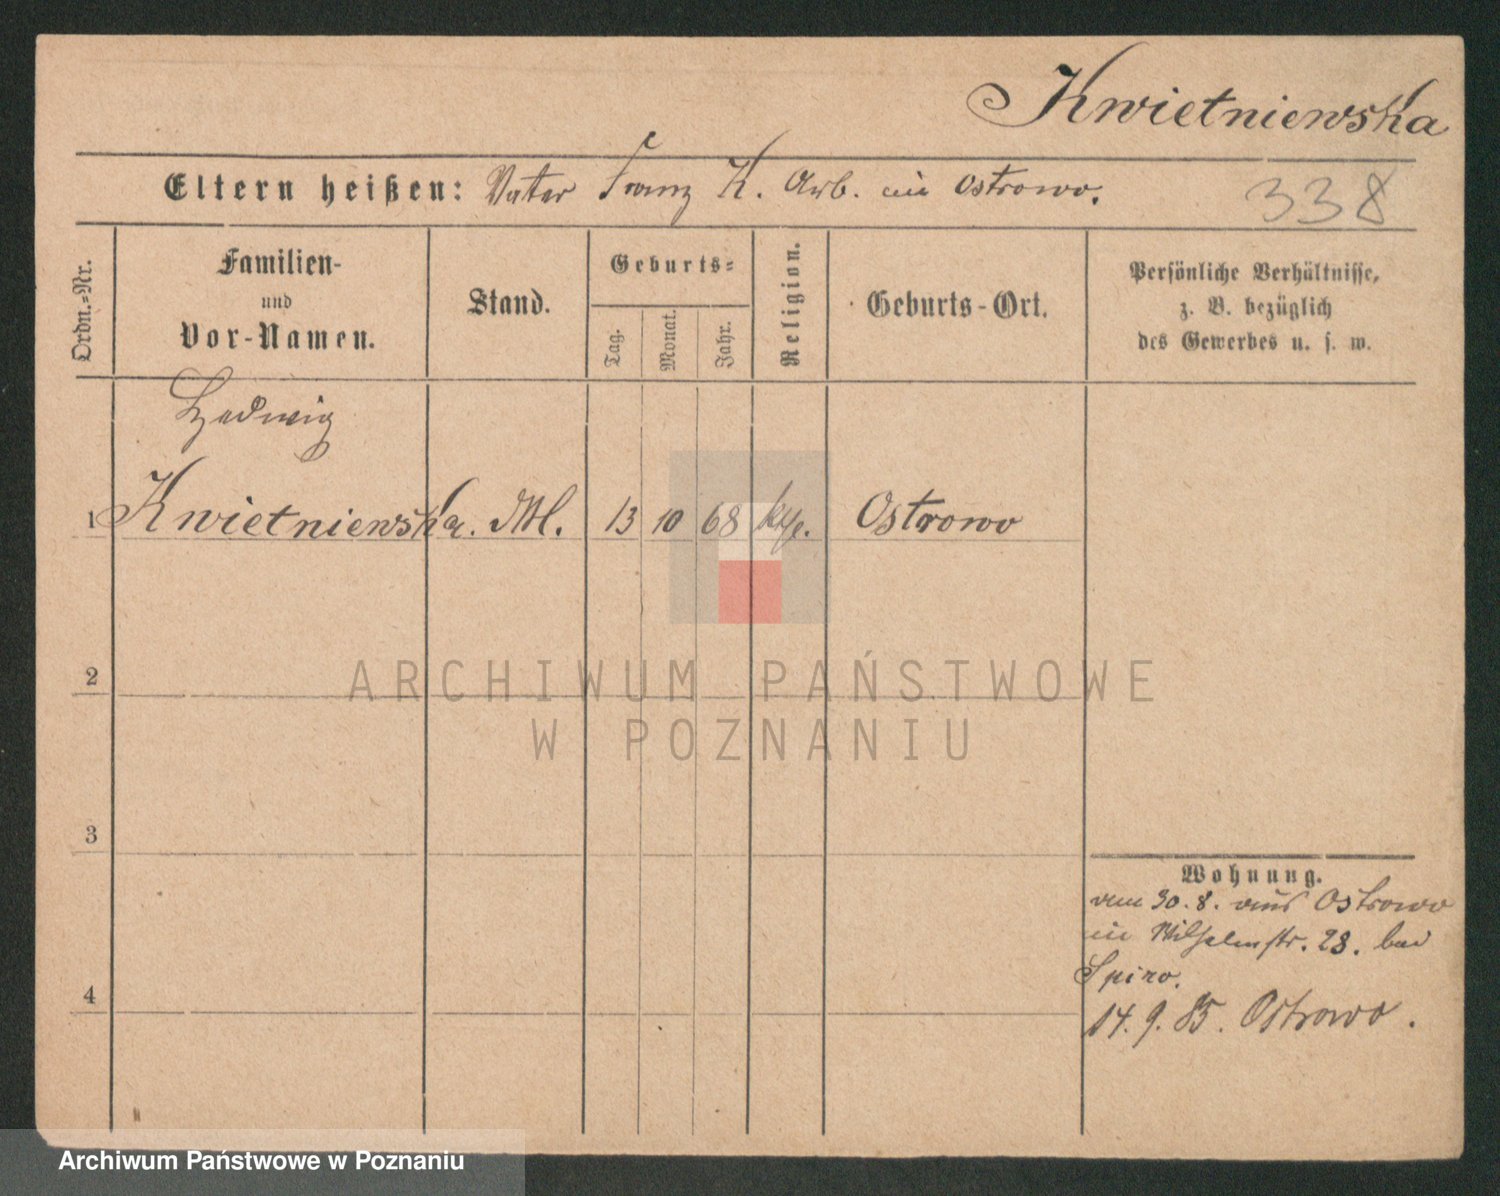 Kwietniewska
Eltern heißen: Vater Franz K. Arb. in Ostrowo.
338
Ordn.-Nr.
Familien-
und
Vor-Namen.
Stand.
Geburts-
Tag.
Monat.
Jahr.
Religion.
Geburts-Ort.
Persönliche Verhältnisse,
z. B. bezüglich
des Gewerbes u. s. w.
Hedwig
1 Kwietniewska. 13 10 68 Ostrowo
ARCHIWUM PAŃSTWOWE
W POZNANIU
2
3
4
Wohnung.
am 30. 8. aus Ostrowo
in Wilhelmstr. 28. bei
Spiro.
14. 9. 85. Ostrowo.
Archiwum Państwowe w Poznaniu